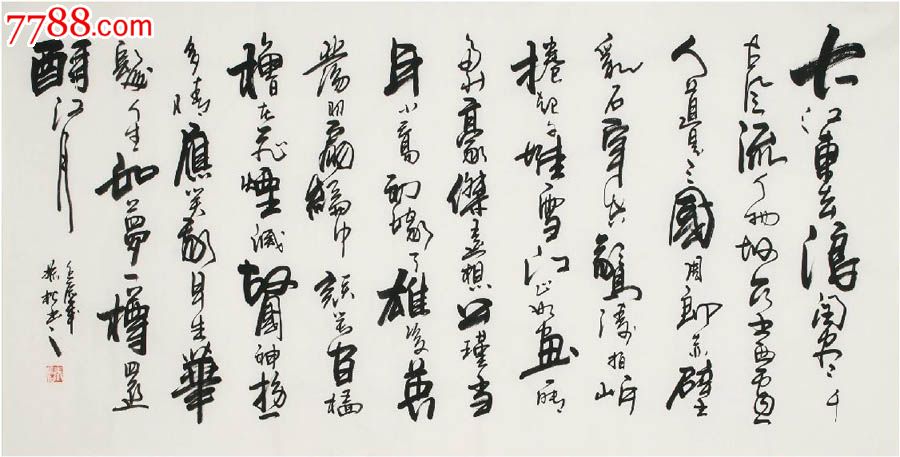 7788.com
大江東去浪淘盡千
古風流人物故壘西邊
人道是三國周郎赤壁
亂石穿空驚濤拍岸
捲起千堆雪江山如畫一時
多少豪傑遥想公瑾當
年小喬初嫁了雄姿英
發羽扇綸巾談笑間檣
櫓灰飛煙滅故國神游
多情應笑我早生華
髮人生如夢一樽還
酹江月
壬辰年
松書